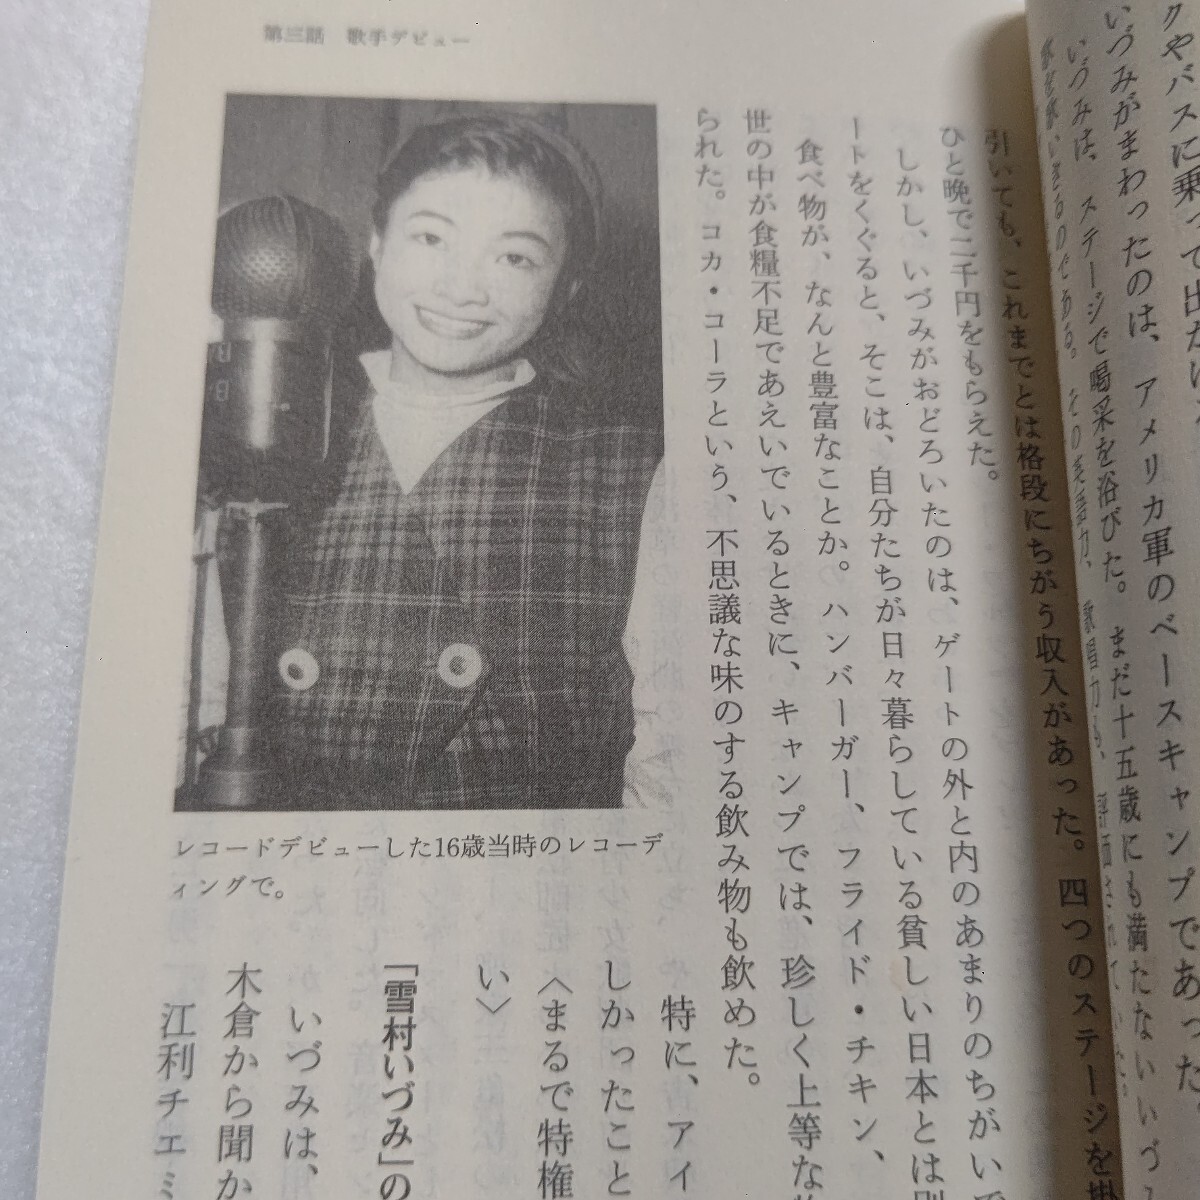 第三話　歌手デビュー
クやバスに乗って出かけ
いづみがまわったのは、アメリカ軍のベースキャンプであった。
いづみは、ステージで喝采を浴びた。まだ十五歳にも満たないいづ
引いても、これまでとは格段にちがう収入があった。四つのステージを掛
ひと晩で二千円をもらえた。
しかし、いづみがおどろいたのは、ゲートの外と内のあまりのちがい
ートをくぐると、そこは、自分たちが日々暮らしている貧しい日本とは別
食べ物が、なんと豊富なことか。ハンバーガー、フライド・チキン、
世の中が食糧不足であえいでいるときに、キャンプでは、珍しく上等な
られた。コカ・コーラという、不思議な味のする飲み物も飲めた。
特に、アイ
しかったこと
〈まるで特権
い〉
「雪村いづみ」の
いづみは、
木倉から聞か
江利チエミ
レコードデビューした16歳当時のレコーデ
ィングで。